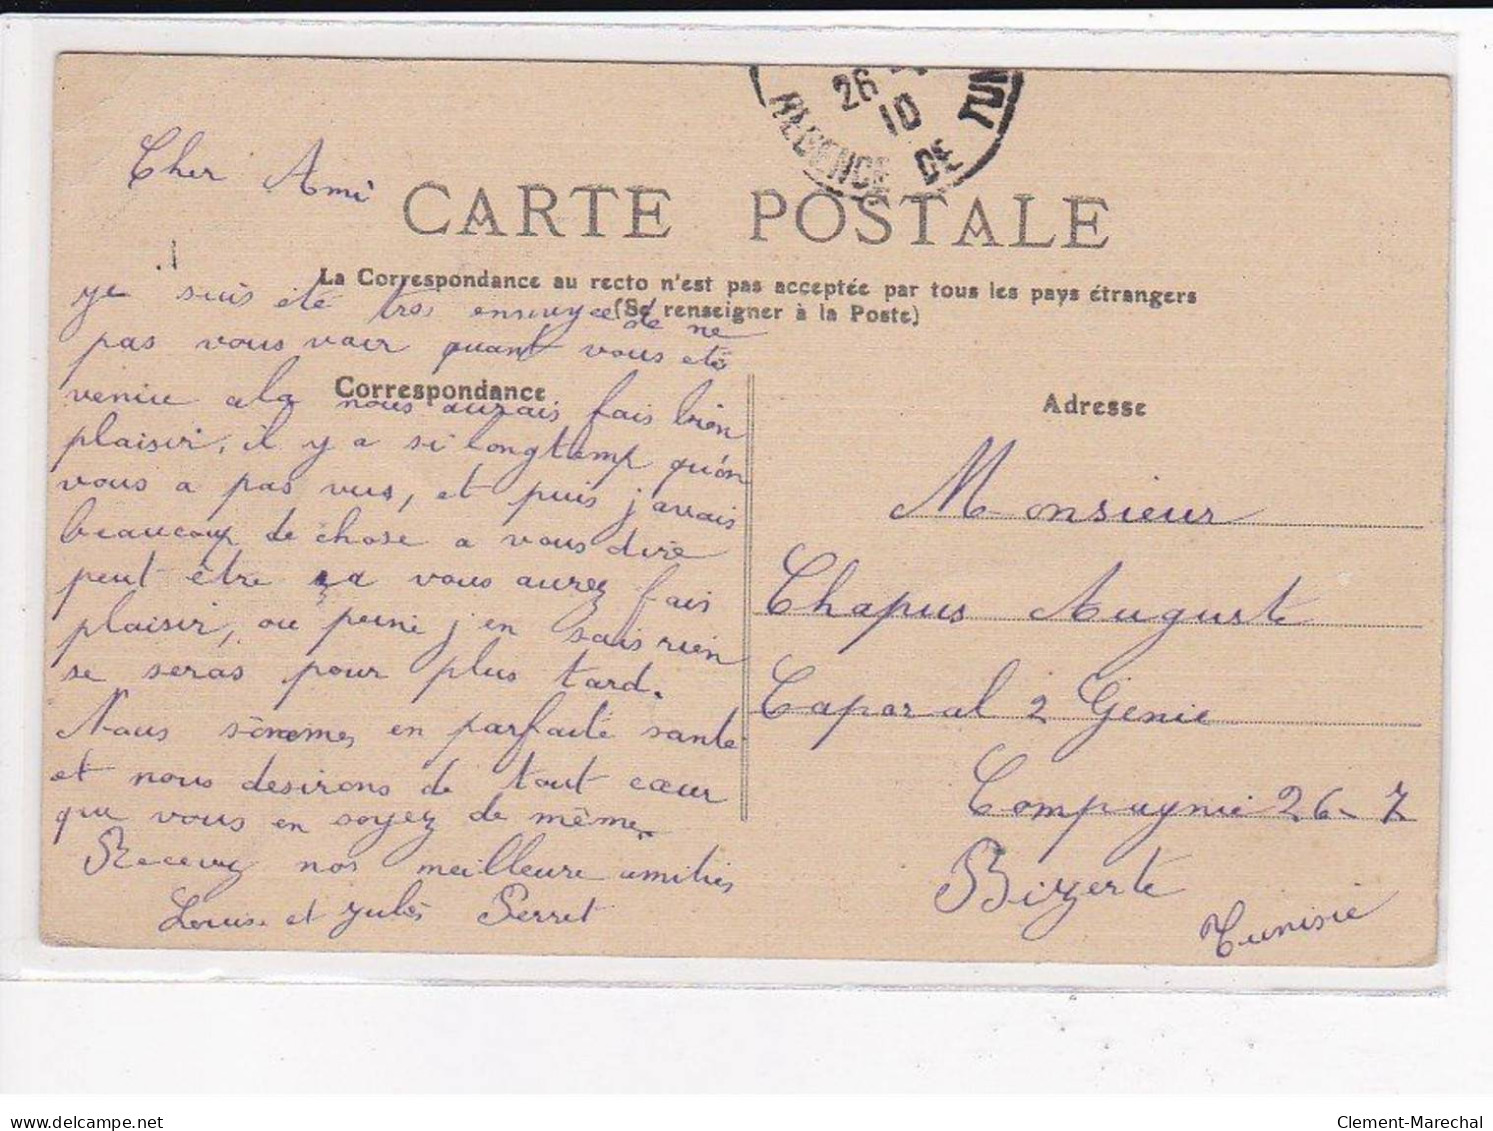 26
10
REGENCE DE TUN
Cher Ami
CARTE POSTALE
La Correspondance au recto n'est pas acceptée par tous les pays étrangers
(Se renseigner à la Poste)
Correspondance
je suis été tres ennuyee de ne
pas vous voir quant vous eté
venue a la nous aurais fais bien
plaisir, il y a si longtemp qu'on
vous a pas vus, et puis j'avais
beaucoup de chose a vous dire
peut être ça vous aurez fais
plaisir, ou peine j'en sais rien
se seras pour plus tard.
Nous sommes en parfaite santé
et nous desirons de tout cœur
que vous en soyez de même
Recevez nos meilleure amitiés
Louise et Jules Perret
Adresse
Monsieur
Chapus August
Caporal 2 Genie
Compagnie 26-7
Bizerte
Tunisie
delcampe.net
Clement-Marechal